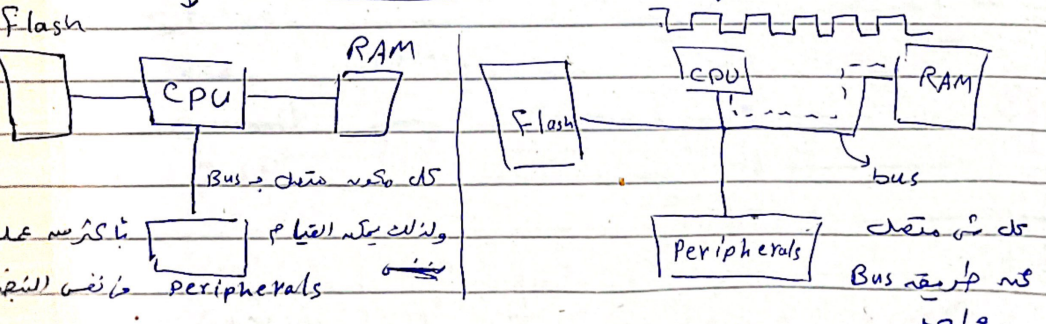 Flash
CPU
RAM
كل مكون متصل بـ Bus
ولذلك يمكن القيام
بأكثر من
في نفس
Peripherals
CPU
RAM
Flash
bus
Peripherals
كل شئ متصل
عن طريق Bus
واحد